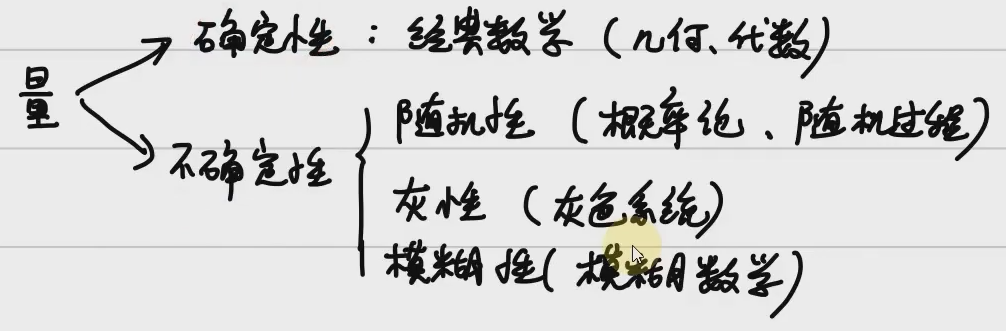 确定性：经典数学（几何、代数）
量
不确定性
随机性（概率论、随机过程）
灰性（灰色系统）
模糊性（模糊数学）